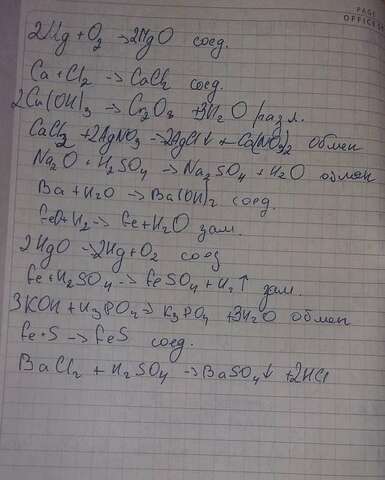 PAGE
OFFICES
2Mg + O2 → 2MgO соед.
Ca + Cl2 → CaCl2 соед.
2Cr(OH)3 → Cr2O3 + 3H2O разл.
CaCl2 + 2AgNO3 → 2AgCl↓ + Ca(NO3)2 обмен
Na2O + H2SO4 → Na2SO4 + H2O обмен
Ba + H2O → Ba(OH)2 соед.
FeO + H2 → Fe + H2O зам.
2HgO → 2Hg + O2 соед
Fe + H2SO4 → FeSO4 + H2↑ зам.
3KOH + H3PO4 → K3PO4 + 3H2O обмен
Fe + S → FeS соед.
BaCl2 + H2SO4 → BaSO4↓ + 2HCl